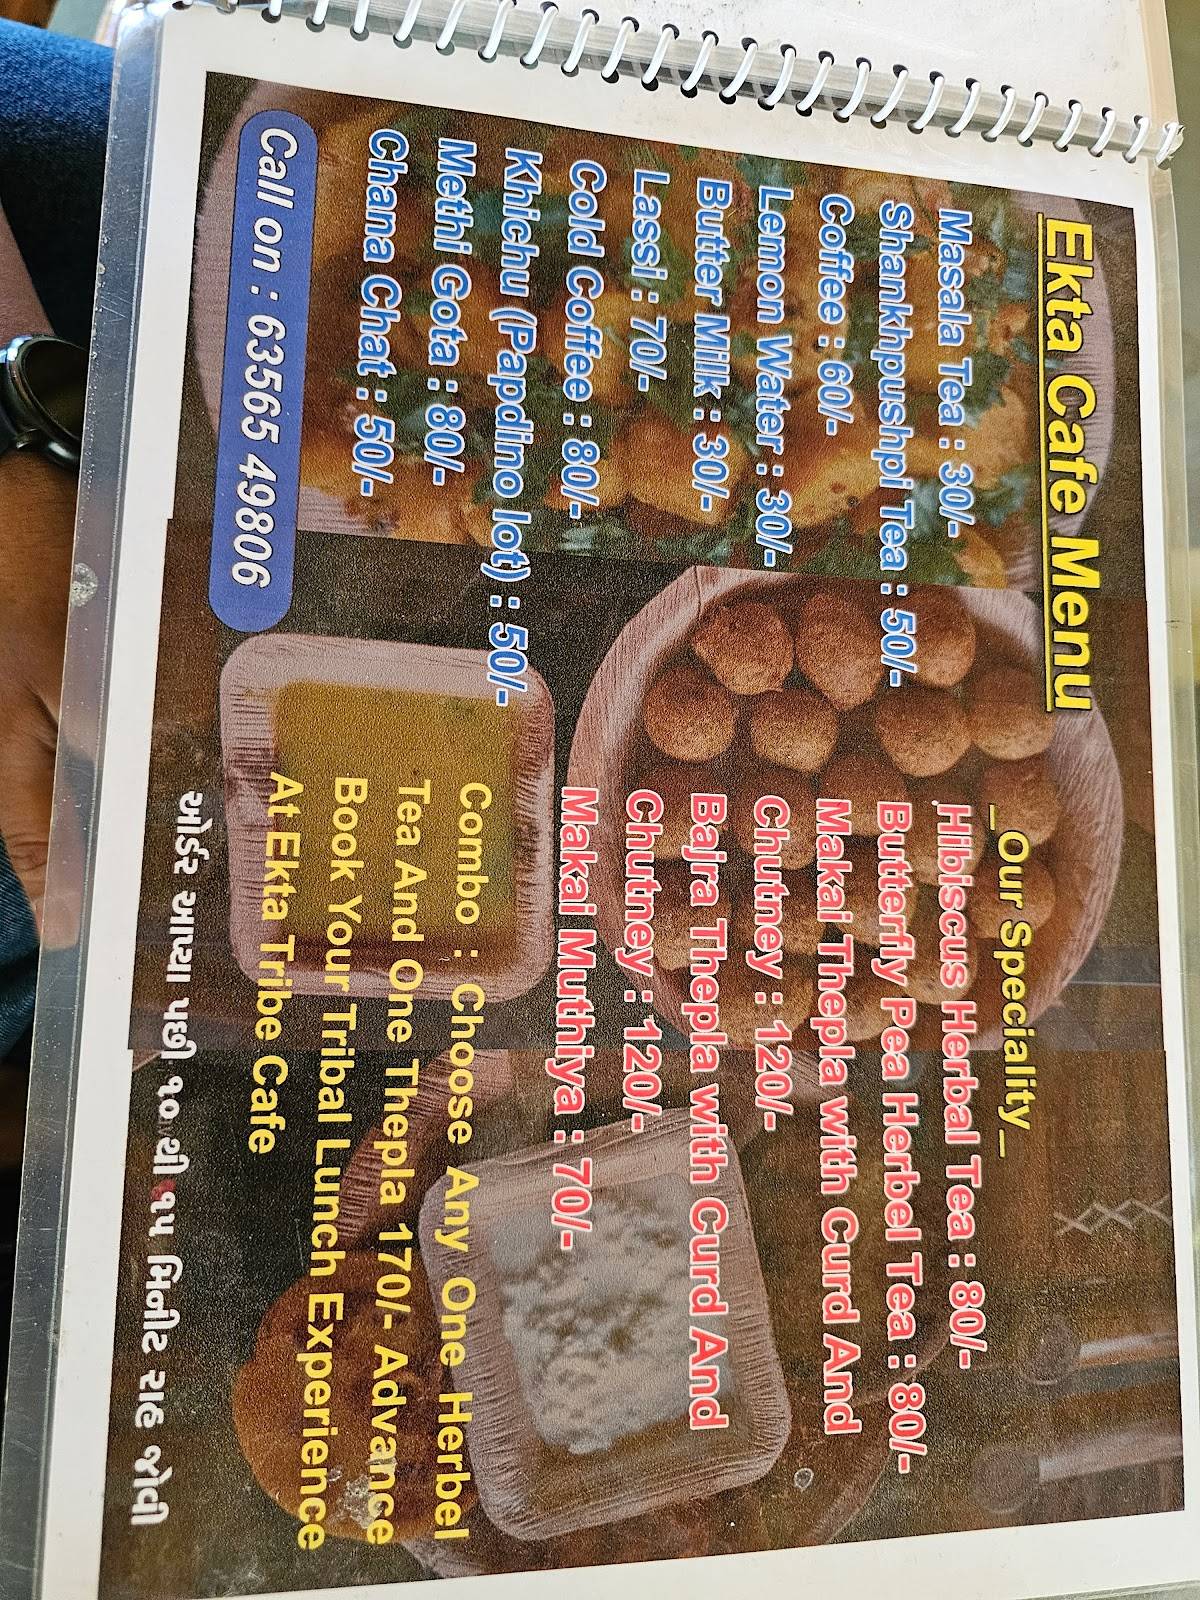 Ekta Cafe Menu
Masala Tea : 30/-
Shankhpushpi Tea : 50/-
Coffee : 60/-
Lemon Water : 30/-
Butter Milk : 30/-
Lassi : 70/-
Cold Coffee : 80/-
Khichu (Papdi no lot) : 50/-
Methi Gota : 80/-
Chana Chat : 50/-
Call on : 63565 49806
_Our Speciality_
Hibiscus Herbal Tea : 80/-
Butterfly Pea Herbel Tea : 80/-
Makai Thepla with Curd And
Chutney : 120/-
Bajra Thepla with Curd And
Chutney : 120/-
Makai Muthiya : 70/-
Combo : Choose Any One Herbel
Tea And One Thepla 170/- Advance
Book Your Tribal Lunch Experience
At Ekta Tribe Cafe
ઓર્ડર આપ્યા પછી ૧૦ થી ૧૫ મિનીટ રાહ જોવી